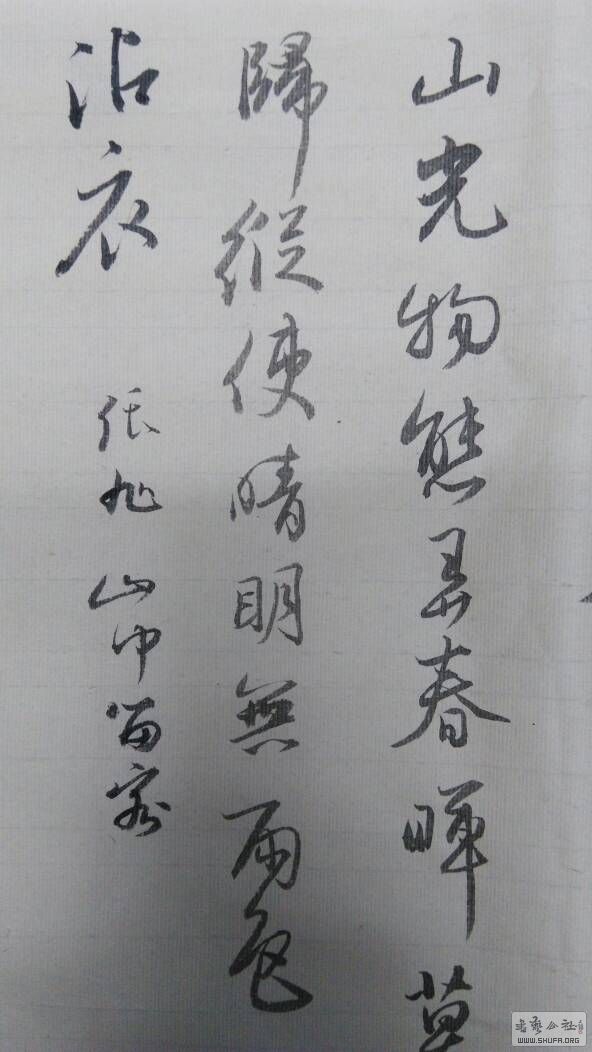 山光物態弄春暉草
歸縱使晴明無雨色
沾衣
張旭 山中留客
書藝公社
WWW.SHUFA.ORG